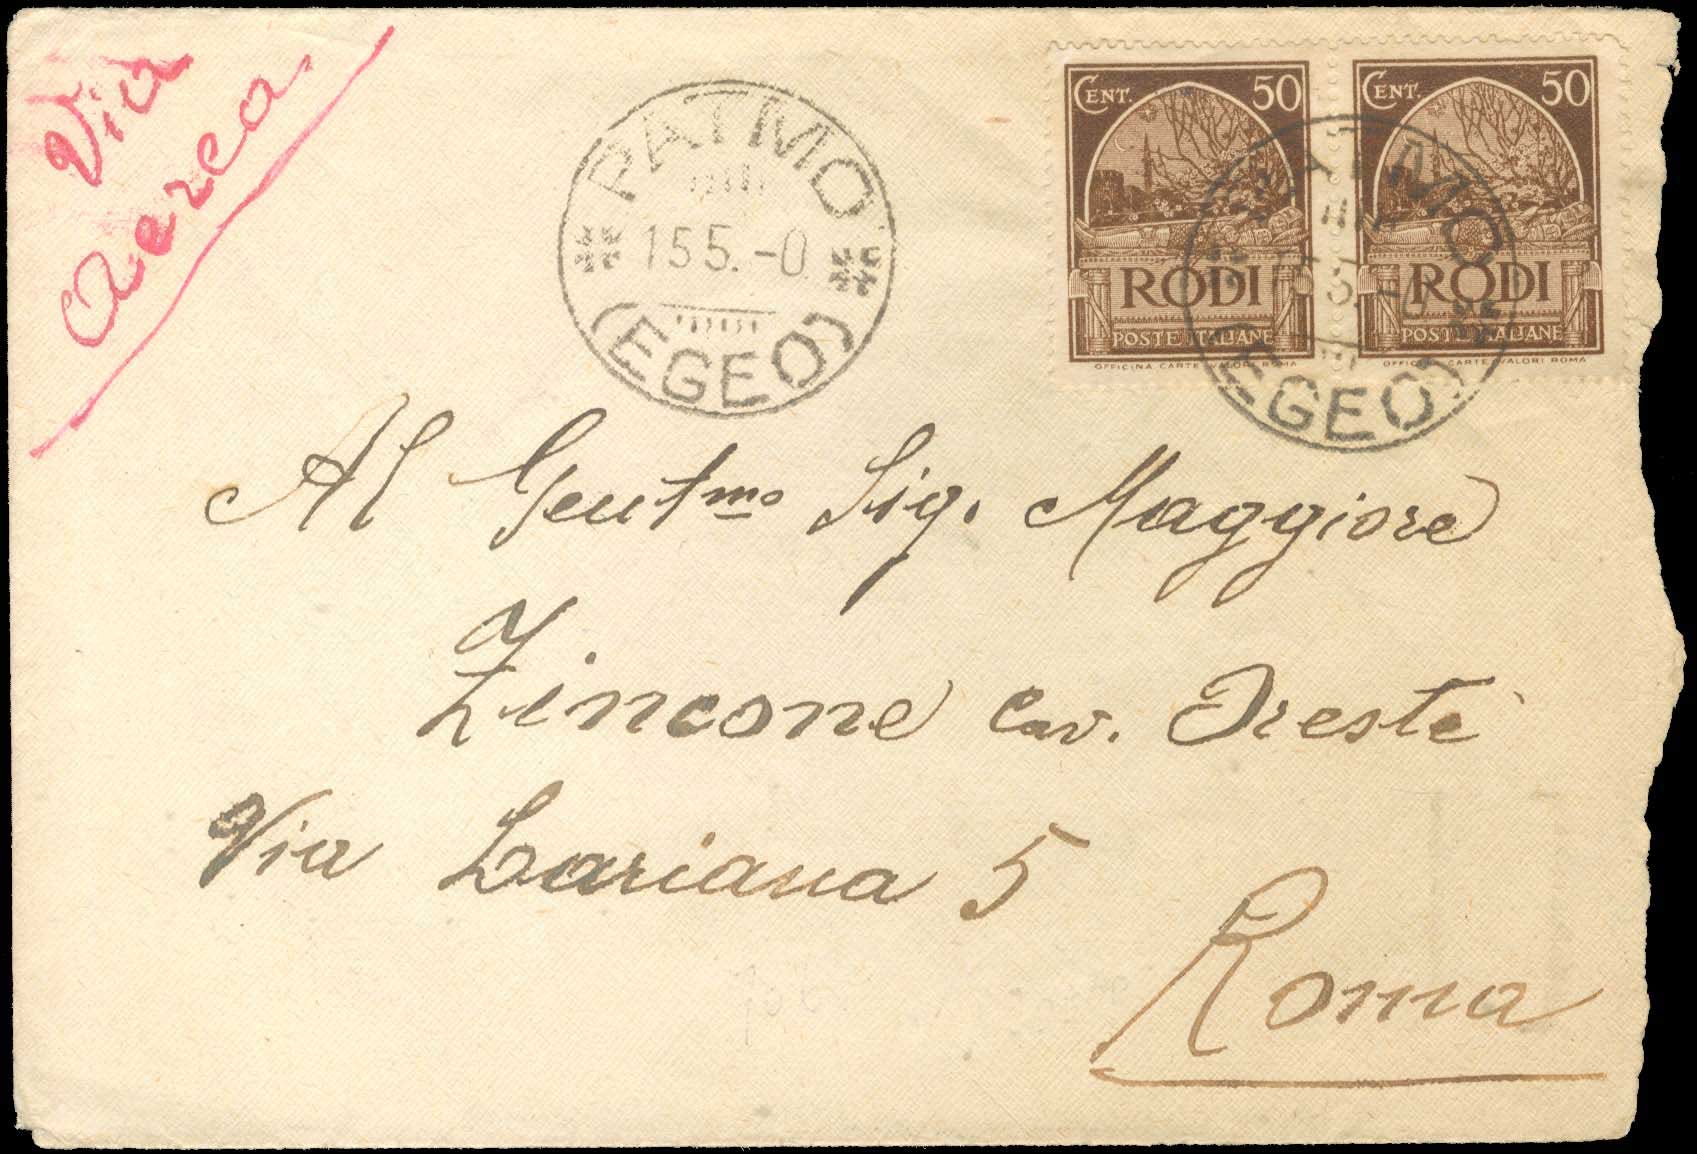 Via
aerea
PATMO
155.-0
(EGEO)
CENT. 50
RODI
POSTE ITALIANE
OFFICINA CARTE VALORI ROMA
CENT. 50
RODI
POSTE ITALIANE
OFFICINA CARTE VALORI ROMA
PATMO
(EGEO)
Al Gentmo Sig. Maggiore
Zincone Cav. Oreste
Via Lariana 5
Roma